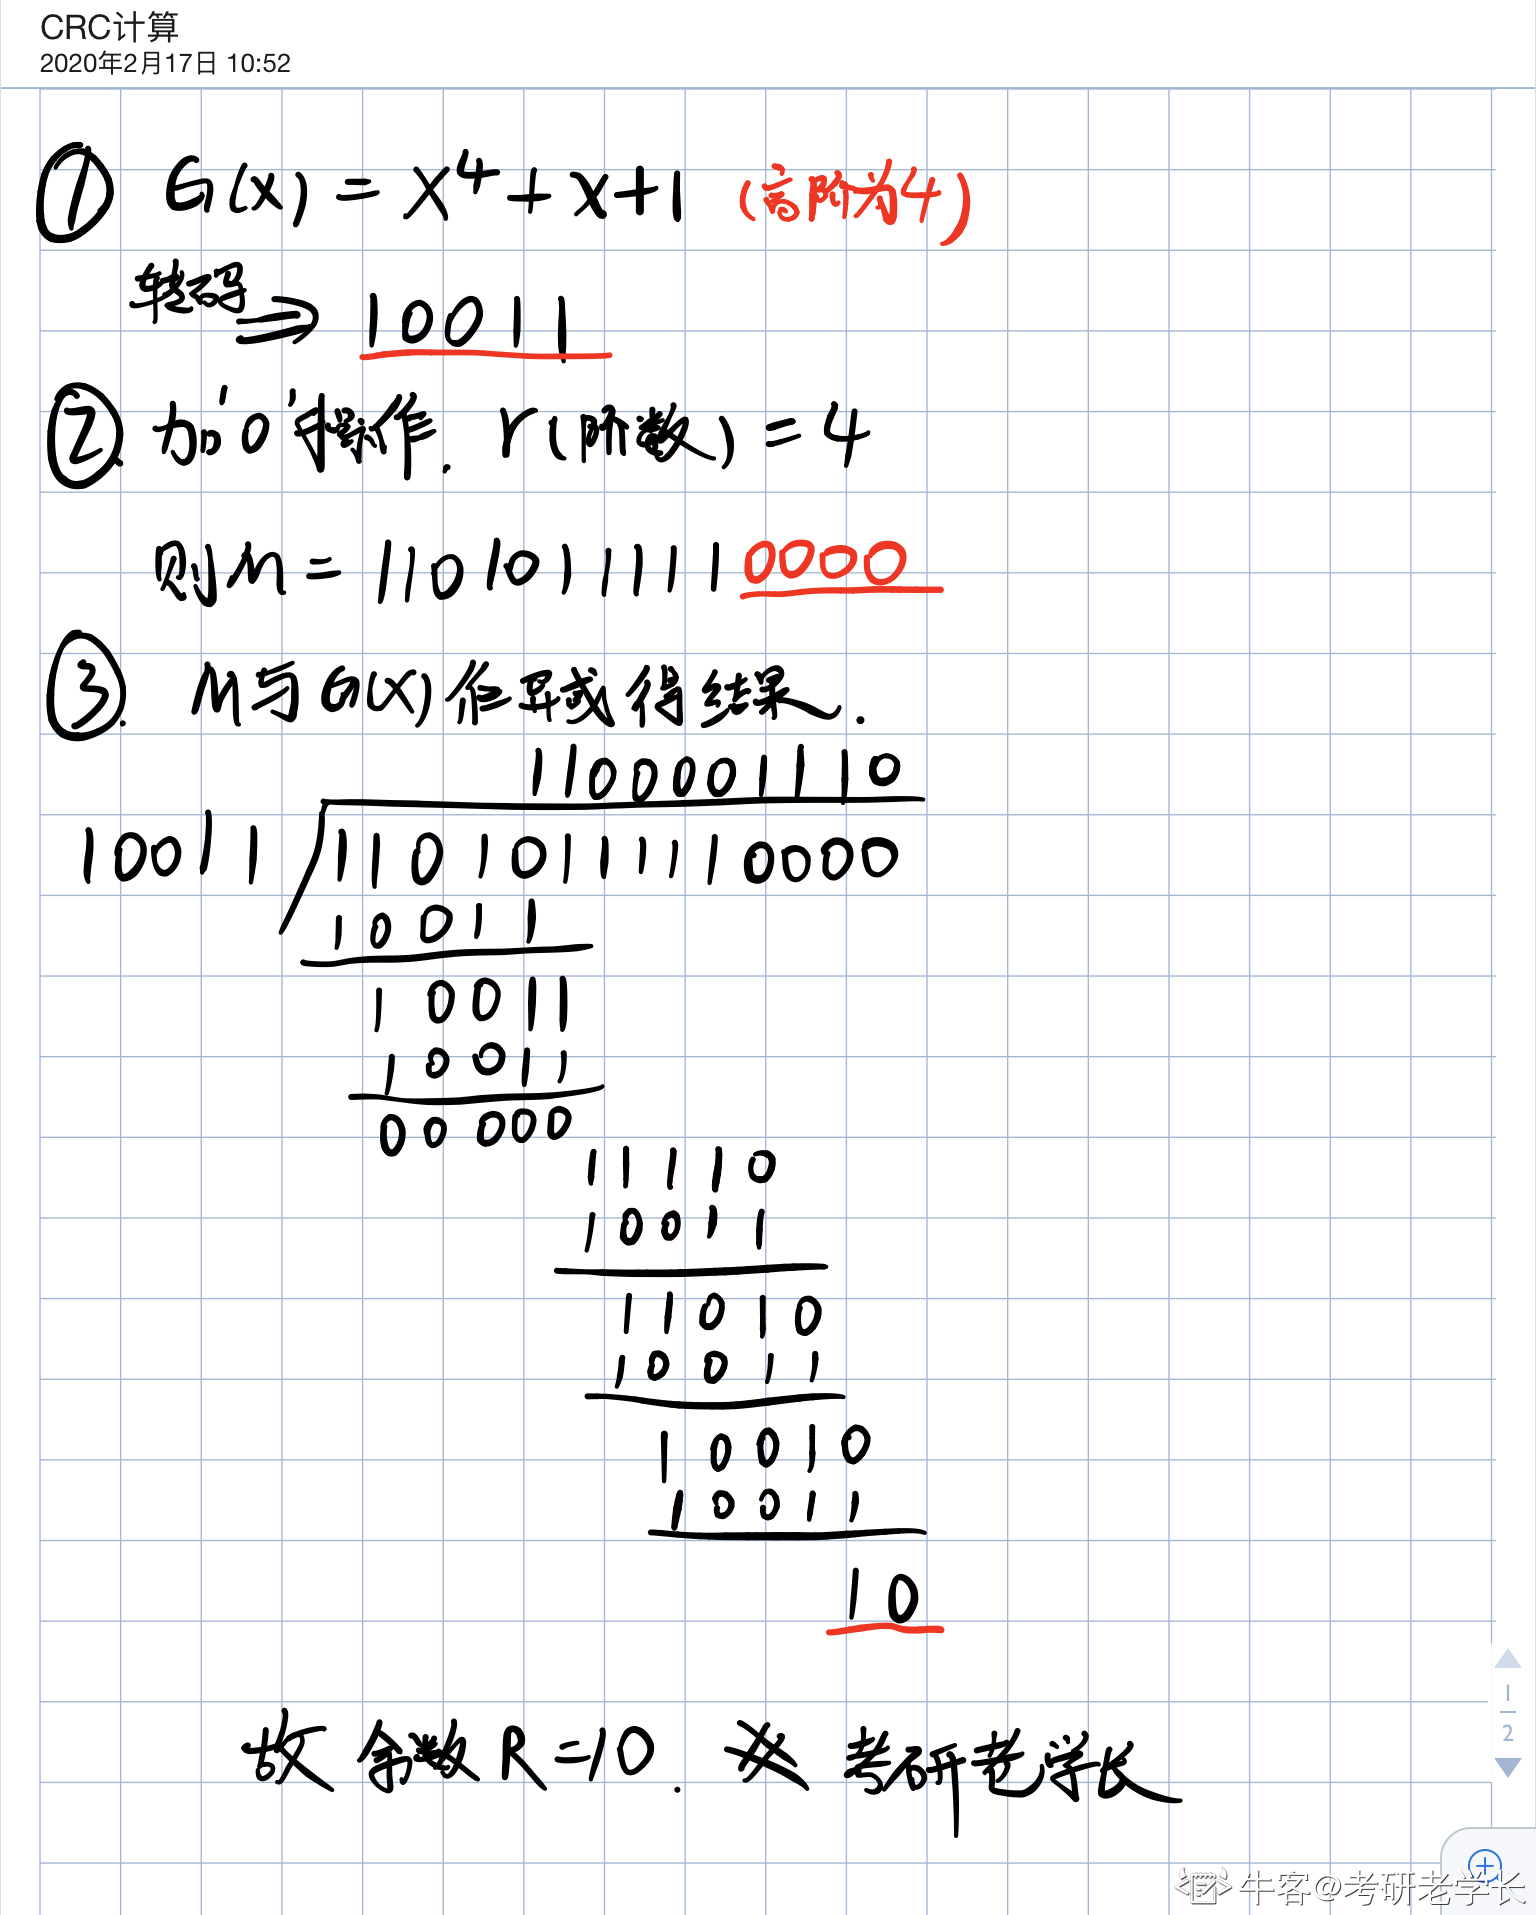 CRC计算
2020年2月17日 10:52
① G(x) = x⁴+x+1 (高阶为4)
转码 ⇒ 10011
② 加'0'操作. r(阶数)=4
则M = 11010111110000
③. M与G(x)作异或得结果.
1100001110
10011 11010111110000
10011
10011
10011
00000
11110
10011
11010
10011
10010
10011
10
故 余数R=10. 考研老学长
1
2
牛客@考研老学长